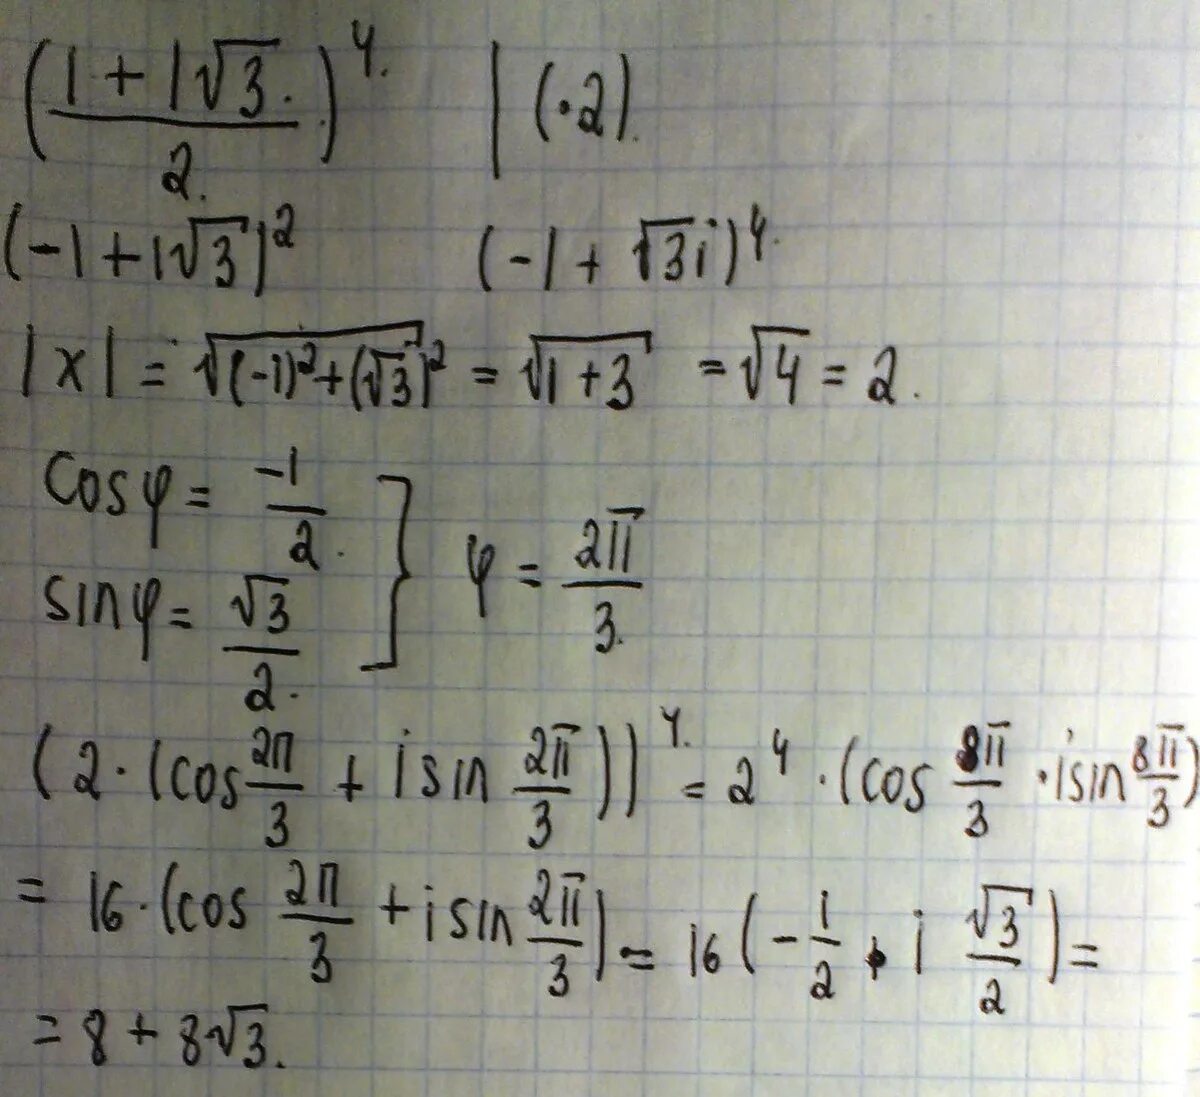 (1 + i√3 / 2)^4 | (·2)
(-1 + i√3)^2 (-1 + √3i)^4
|x| = √((-1)^2 + (√3)^2) = √(1 + 3) = √4 = 2.
cosφ = -1/2
sinφ = √3/2 } φ = 2π/3
(2·(cos 2π/3 + i sin 2π/3))^4 = 2^4·(cos 8π/3 · i sin 8π/3)
= 16·(cos 2π/3 + i sin 2π/3) = 16(-1/2 + i √3/2) =
= 8 + 8√3.